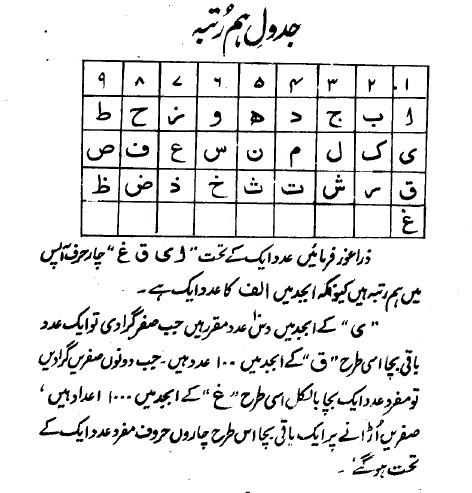 جدول ہم رُتبہ
۱ ۲ ۳ ۴ ۵ ۶ ۷ ۸ ۹
ا ب ج د ھ و ز ح ط
ی ک ل م ن س ع ف ص
ق ر ش ت ث خ ذ ض ظ
غ
ذرا غور فرمائیں عدد ایک کے تحت "ا ی ق غ" چار حرف آپس
میں ہم رتبہ ہیں کیونکہ ابجد میں الف کا عدد ایک ہے۔
"ی" کے ابجد میں دس عدد مقرر ہیں جب صفر گرا دی تو ایک عدد
باقی بچا اسی طرح "ق" کے ابجد میں ۱۰۰ عدد ہیں۔ جب دونوں صفریں گرا دیں
تو مفرد عدد ایک بچا بالکل اسی طرح "غ" کے ابجد میں ۱۰۰۰ اعداد ہیں،
صفریں اُڑانے پر ایک باقی بچا اس طرح چاروں حروف مفرد عدد ایک کے
تحت ہو گئے۔